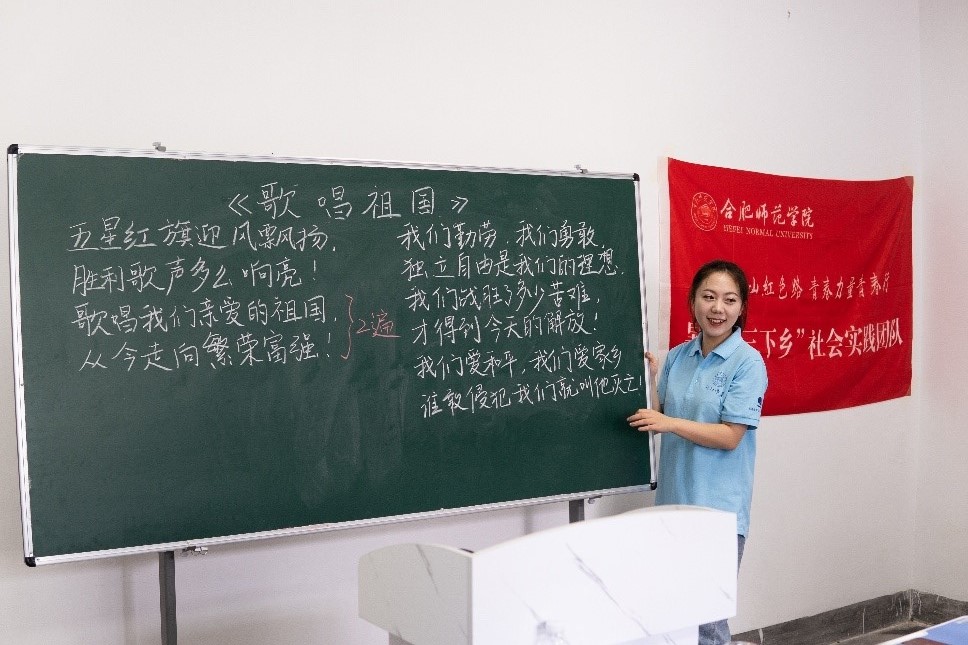 《歌唱祖国》
五星红旗迎风飘扬，
胜利歌声多么响亮！
歌唱我们亲爱的祖国，
从今走向繁荣富强！
2遍
我们勤劳，我们勇敢，
独立自由是我们的理想，
我们战胜了多少苦难，
才得到今天的解放！
我们爱和平，我们爱家乡
谁敢侵犯我们就叫他灭亡！
合肥师范学院
HEFEI NORMAL UNIVERSITY
山红色路 青春力量青春行
下乡”社会实践团队